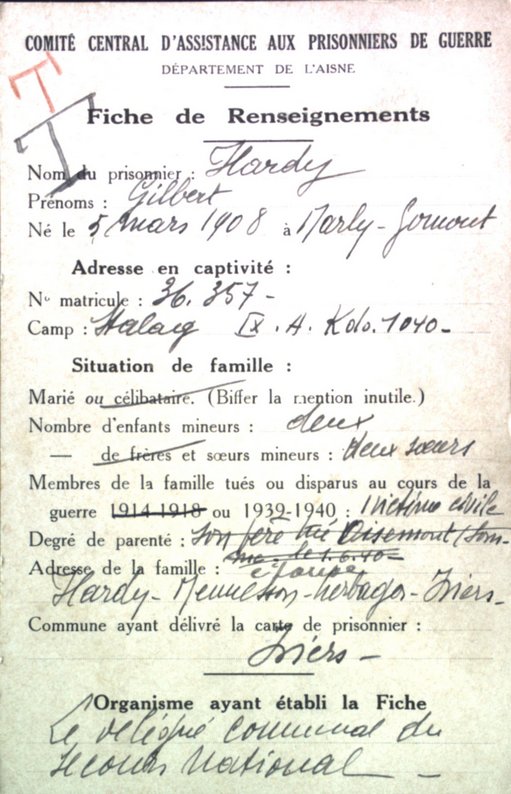 COMITÉ CENTRAL D'ASSISTANCE AUX PRISONNIERS DE GUERRE
DÉPARTEMENT DE L'AISNE
T
T
Fiche de Renseignements
Nom du prisonnier : Hardy
Prénoms : Gilbert
Né le 5 mars 1908 à Marly-Gomont
Adresse en captivité :
No matricule : 36.357-
Camp : Stalag IX.A. Kdo.1040-
Situation de famille :
Marié ou célibataire. (Biffer la mention inutile.)
Nombre d'enfants mineurs : deux
— de frères et sœurs mineurs : deux sœurs
Membres de la famille tués ou disparus au cours de la
guerre 1914-1918 ou 1939-1940 : 1 victime civile
Degré de parenté : Son père tué Oisemont (Som-
me - le 1.6.40-
Adresse de la famille :
Hardy-
Commune ayant délivré la carte de prisonnier :
Organisme ayant établi la Fiche
Le délégué communal du
Secours National -